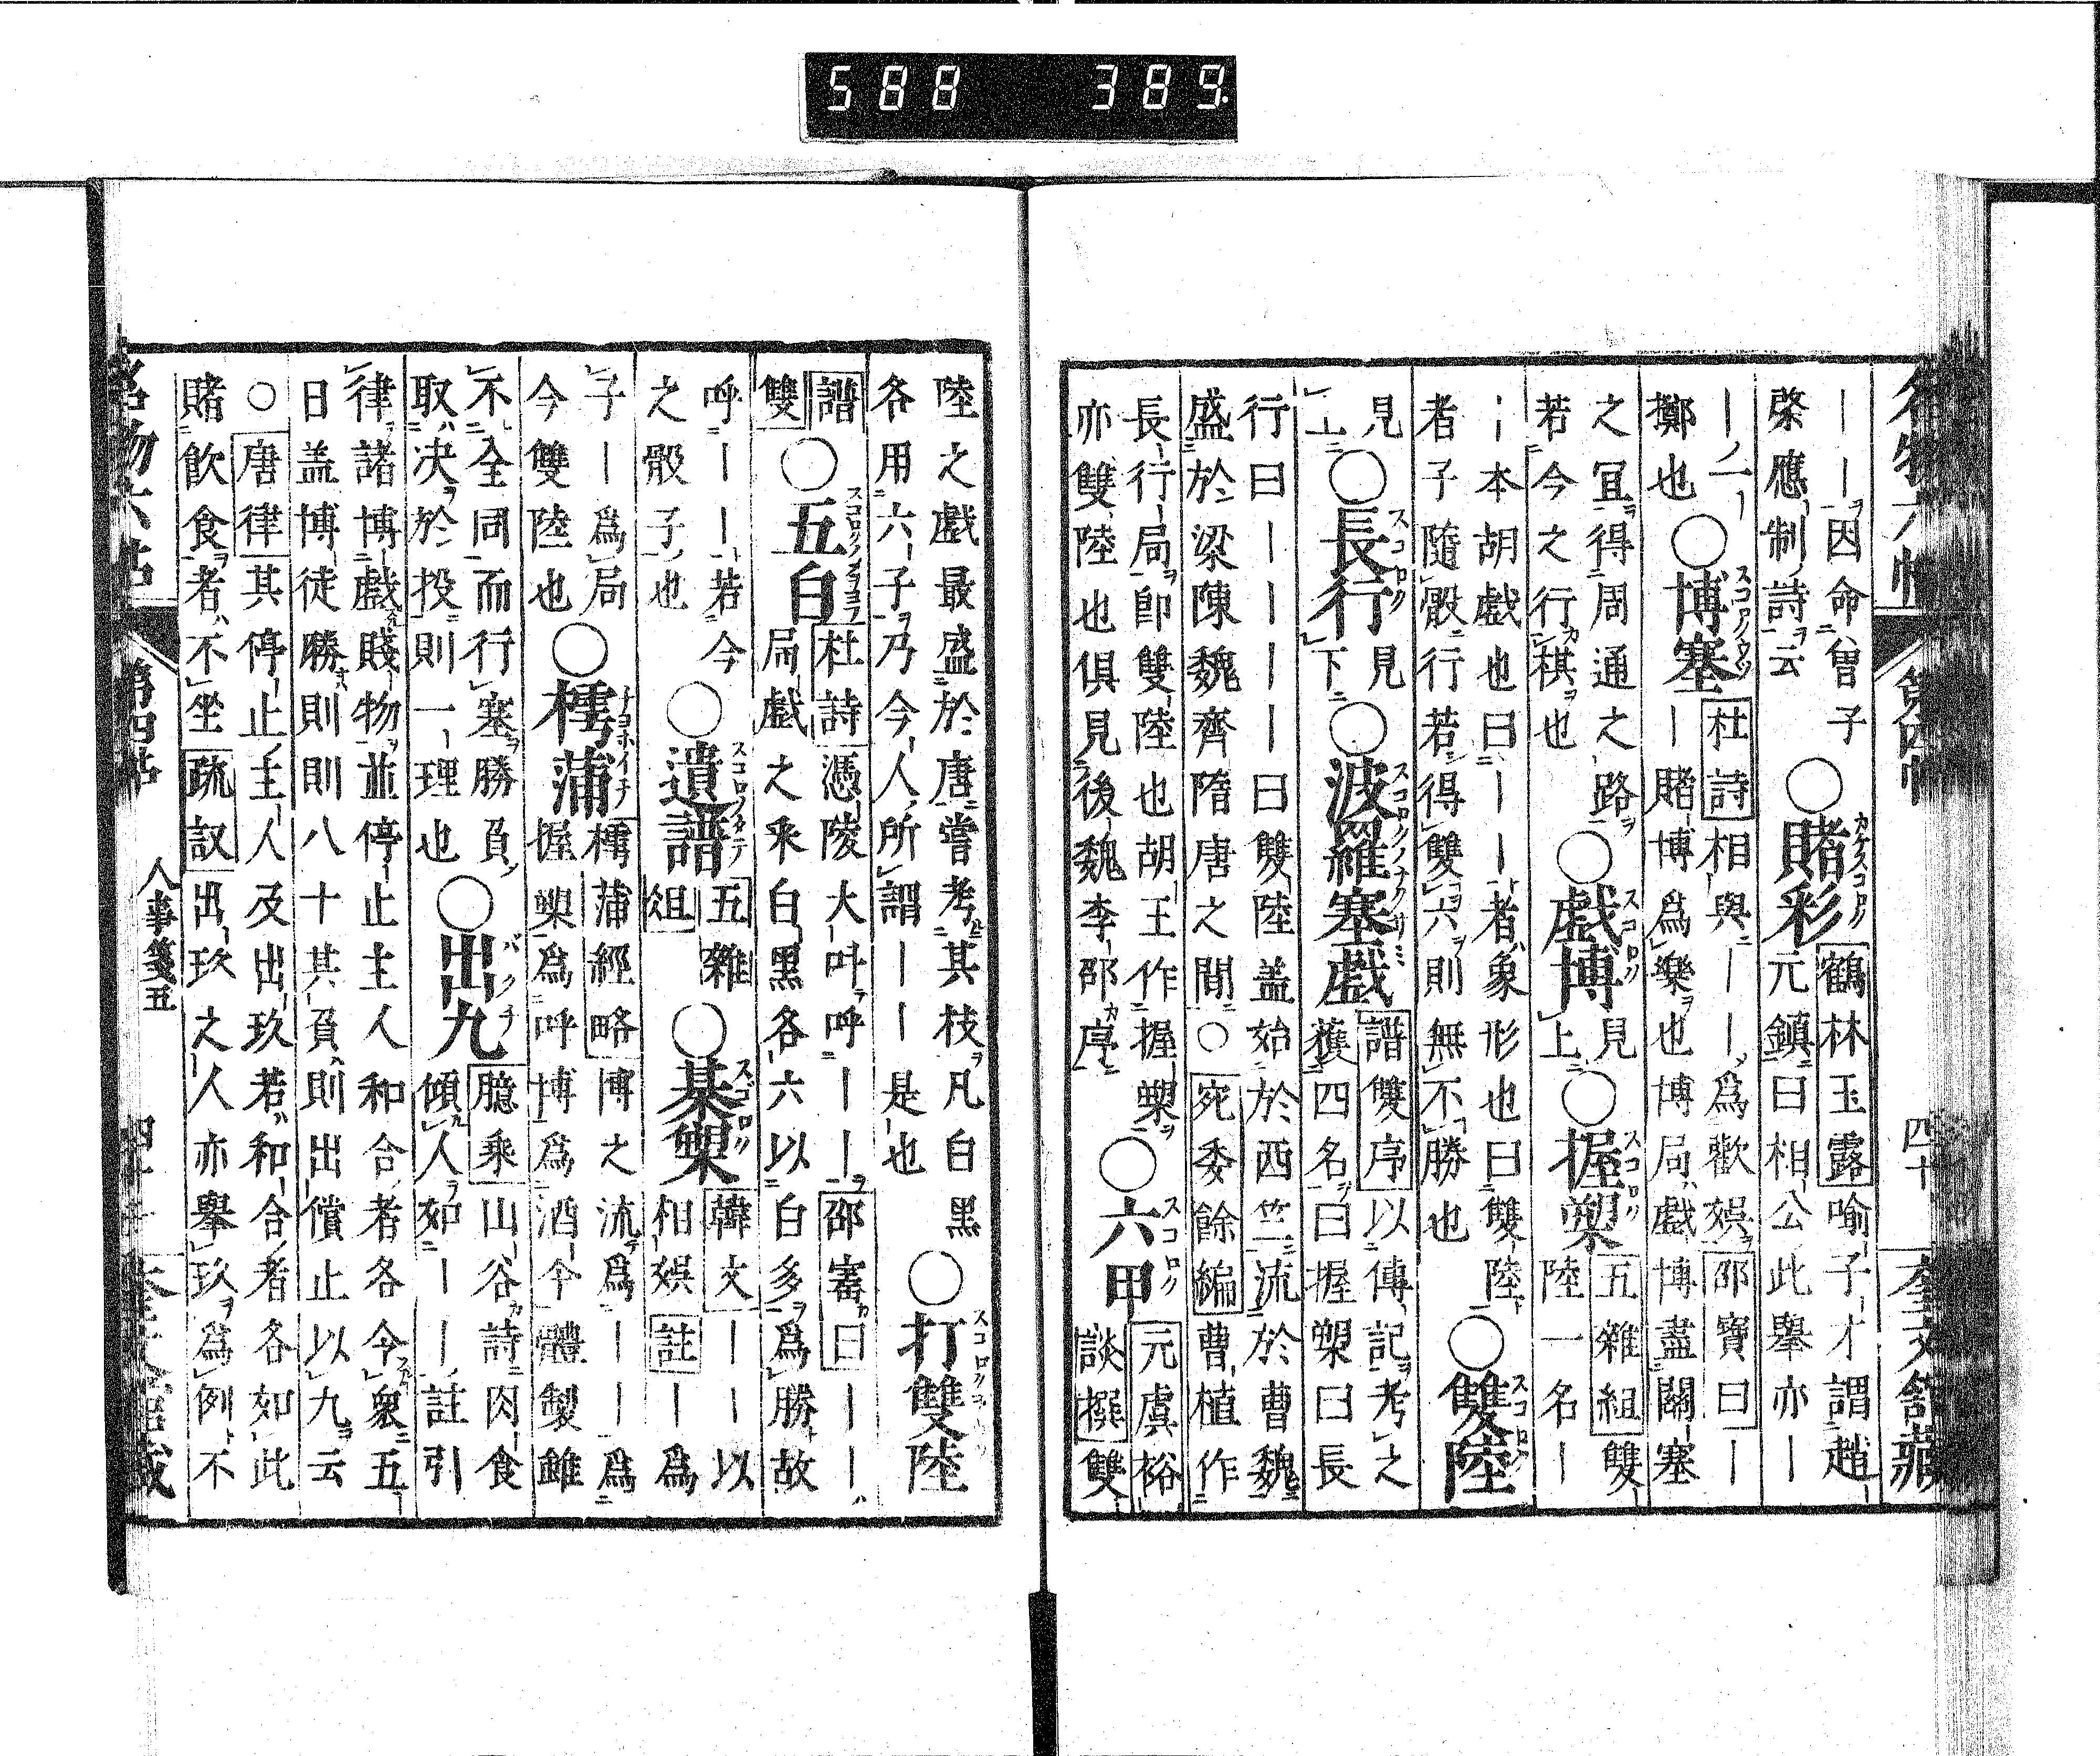 588 389
名物六帖 第四帖 四十 奎文館藏
｜｜因命曽子
棨應制詩云
○賭彩
鶴林玉露喻子才謂趙
元鎮曰相公此擧亦｜
｜一｜
擲也
○博塞
杜詩相與｜｜爲歡娯邵寶曰｜
｜賭博爲樂也博局戲博盡關塞
之冝得周通之路
若今之行棋也
○戲博
見上
○握槊
五雜組雙
陸一名｜
｜本胡戲也曰｜｜者象形也曰雙陸
者子隨骰行若得雙六則無不勝也
○雙陸
見上
○長行
見下
○波羅塞戲
譜雙序以傳記考之
獲四名曰握槊曰長
行曰｜｜｜｜曰雙陸盖始於西竺流於曹魏
盛於梁陳魏齊隋唐之間○宛委餘編曹植作
長行局卽雙陸也胡王作握槊
亦雙陸也俱見後魏李邵序
○六甲
元虞裕
談撰雙
陸之戲最盛於唐嘗考其枝凡白黑
各用六子乃今人所謂｜｜是也
○打雙陸
譜
雙
○五白
杜詩憑陵大呌呼｜｜邵寚曰｜｜
局戲之釆白黑各六以白多爲勝故
呼｜｜若今
之骰子也
○遺譜
五雜
俎
○棊槊
韓文｜｜以
相娯註｜爲
子｜爲局
今雙陸也
○樗蒲
樗蒲經略博之流爲｜｜爲
握槊爲呼博爲酒今體製雖
不全同而行塞勝負
取决於投則一理也
○出九
臆乘山谷詩肉食
傾人如｜｜註引
律諸博戲賤物並停止主人和合者各令衆五
曰盖博徒勝則則八十其負則出償止以九云
○唐律其停止主人及出玖若和合者各如此
賭飮食者不坐疏議出玖之人亦擧玖爲例不
名物六帖 第四帖 人事箋五 四十一 奎文館藏